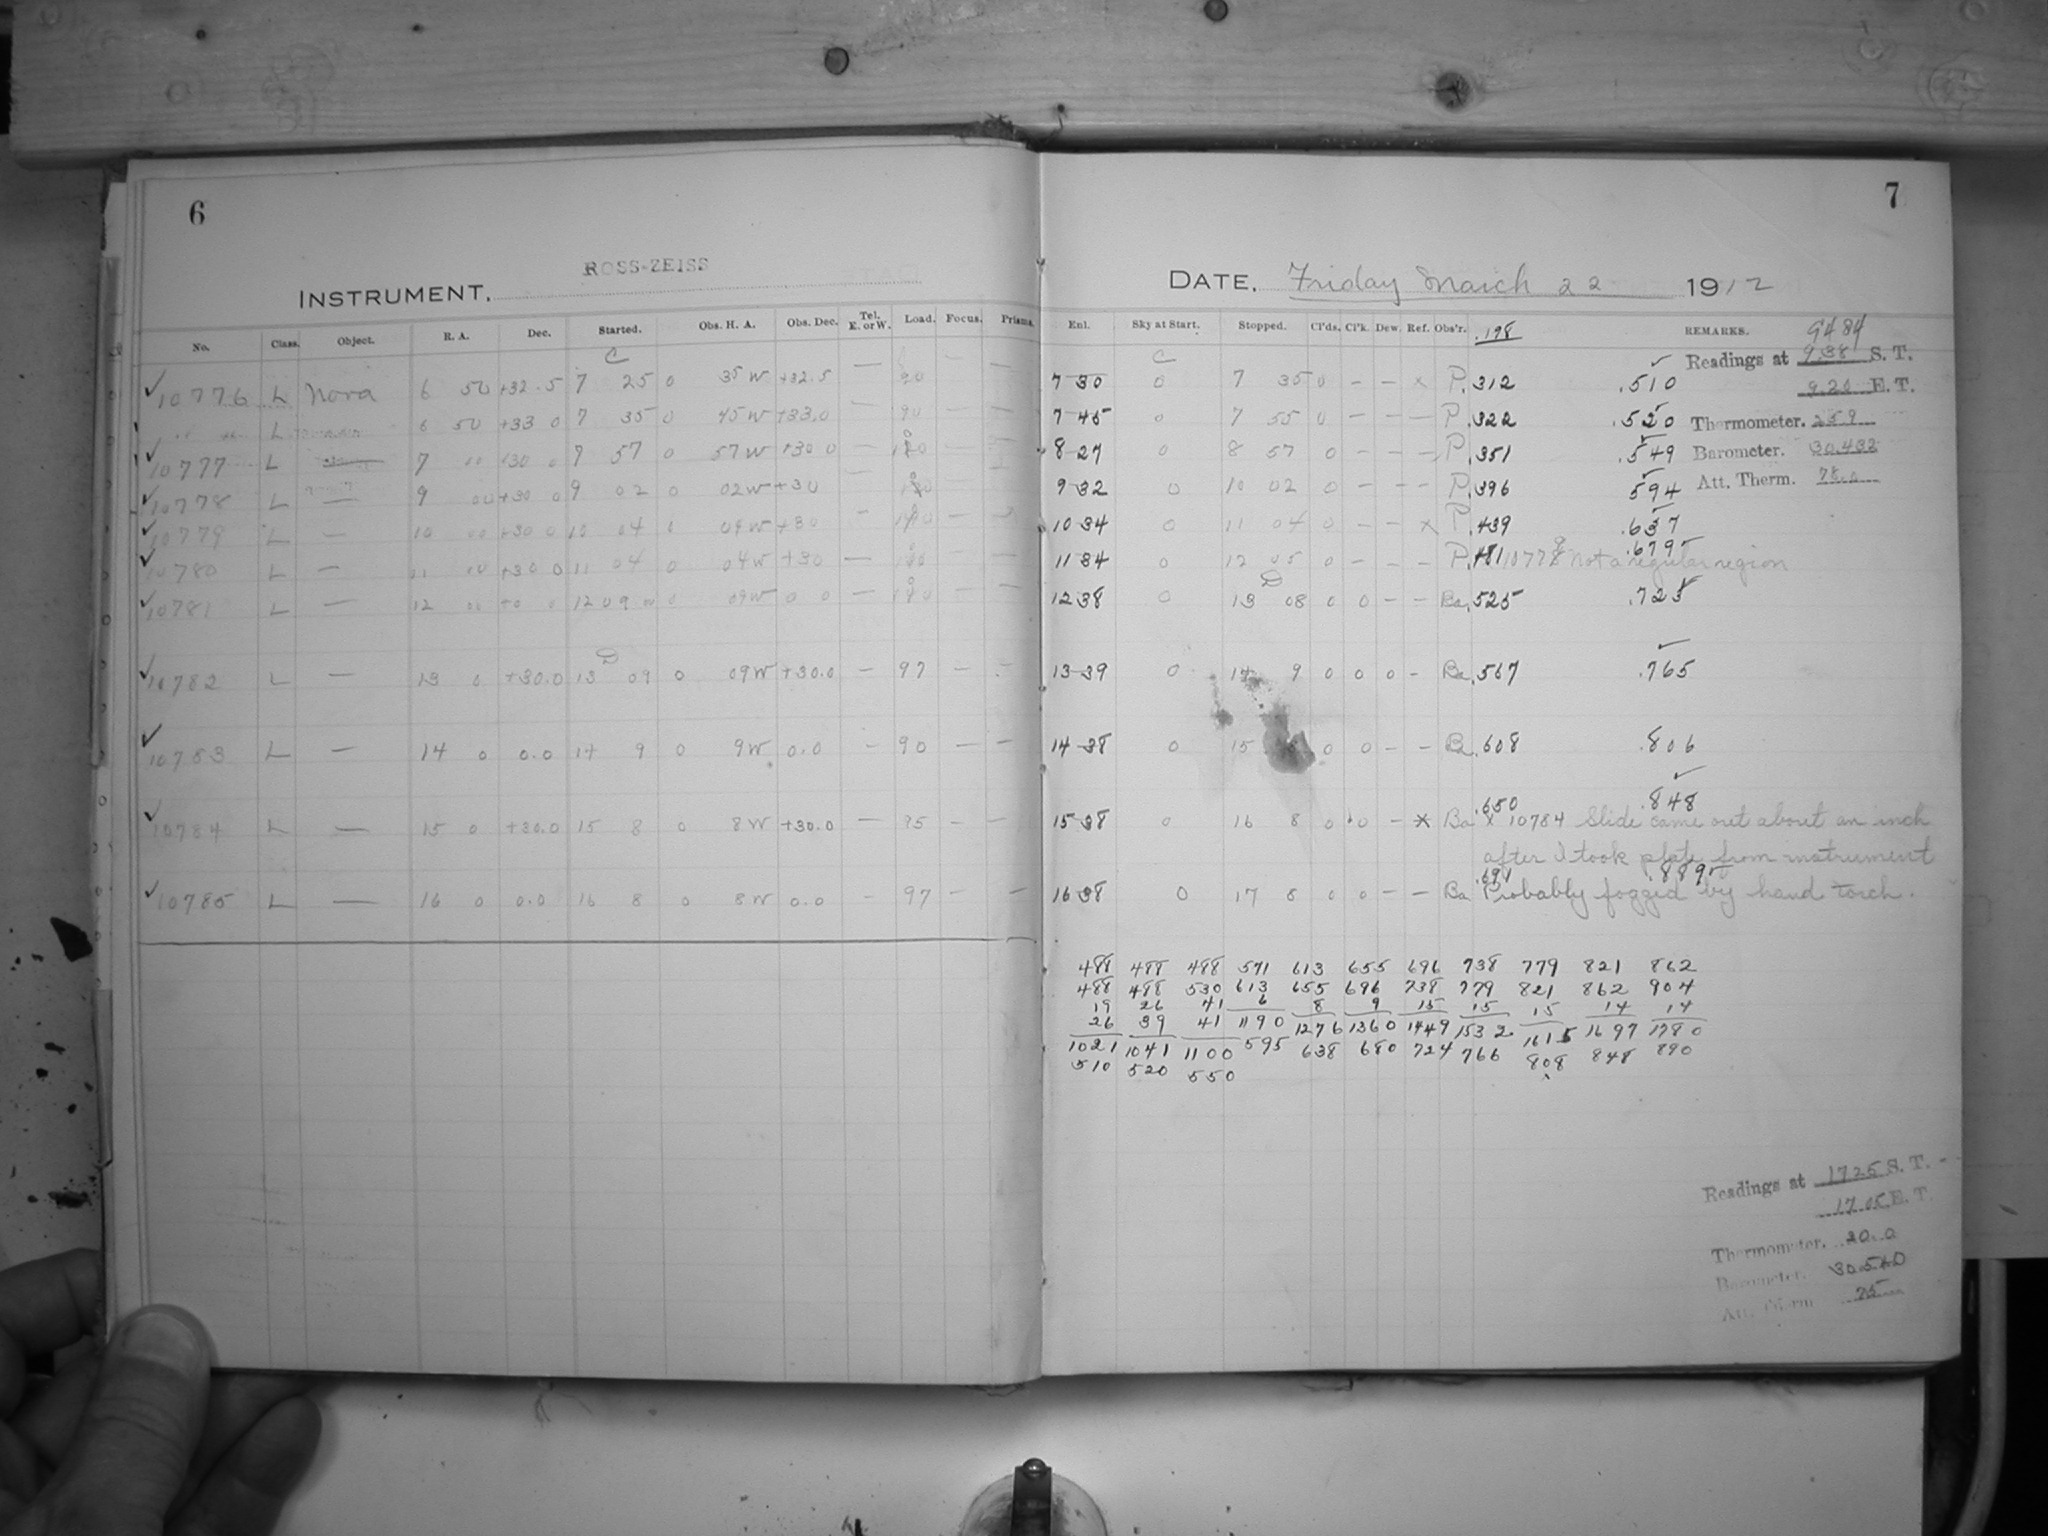 6
ROSS-ZEISS
INSTRUMENT.
No. Class. Object. R. A. Dec. Started. Obs. H. A. Obs. Dec. Tel. E. or W. Load. Focus. Prisms.
C
10776 L Nova 6 50 +32.5 7 25 0 35 W +32.5 — 90 — —
L 6 50 +33 0 7 35 0 45 W +33.0 — 90 — —
10777 L 7 00 +30 0 7 57 0 57 W +30 0 —
10778 L — 9 00 +30 0 9 02 0 02 W +30 —
10779 L — 10 00 +30 0 10 04 0 04 W +30 —
10780 L — 11 00 +30 0 11 04 0 04 W +30 —
10781 L — 12 00 +0 0 12 09 0 09 W 0 0 —
D
10782 L — 13 0 +30.0 13 09 0 09 W +30.0 — 97 — —
10783 L — 14 0 0.0 14 9 0 9 W 0.0 — 90 — —
10784 L — 15 0 +30.0 15 8 0 8 W +30.0 — 95 — —
10785 L — 16 0 0.0 16 8 0 8 W 0.0 — 97 — —
7
DATE. Friday March 22 1912
Enl. Sky at Start. Stopped. Cl'ds. Cl'k. Dew. Ref. Obs'r. .198 REMARKS. 9484
Readings at 9.38 S. T.
C
7 30 0 7 35 0 – – x P .312 .510
9.20 E. T.
7 45 0 7 55 0 – – – P .322 .520
Thermometer. 25.9
8 27 0 8 57 0 – – – P .351 .549
Barometer. 30.432
9 32 0 10 02 0 – – – P .396 .594
Att. Therm. 78.0
10 34 0 11 04 0 – – x P .439 .637
.679
11 34 0 12 05 0 – – – P .481 10778 Not a regular region
D
12 38 0 13 08 0 0 – – Ba .525 .723
13 39 0 14 9 0 0 0 – Ba .567 .765
14 38 0 15 0 0 – – Ba .608 .806
.650 .848
15 38 0 16 8 0 0 – x Ba x 10784 Slide came out about an inch
after I took plate from instrument
.691 .889
16 38 0 17 8 0 0 – – Ba Probably fogged by hand torch.
488 488 488 571 613 655 696 738 779 821 862
488 488 530 613 655 696 738 779 821 862 904
19 26 41 6 8 9 15 15 15 14 14
26 39 41 1190 1276 1360 1449 1532 1615 1697 1780
1021 1041 1100 595 638 680 724 766 808 848 890
510 520 550
Readings at 17 25 S. T.
17 05 E. T.
Thermometer. 20.0
Barometer. 30.540
Att. Therm 75